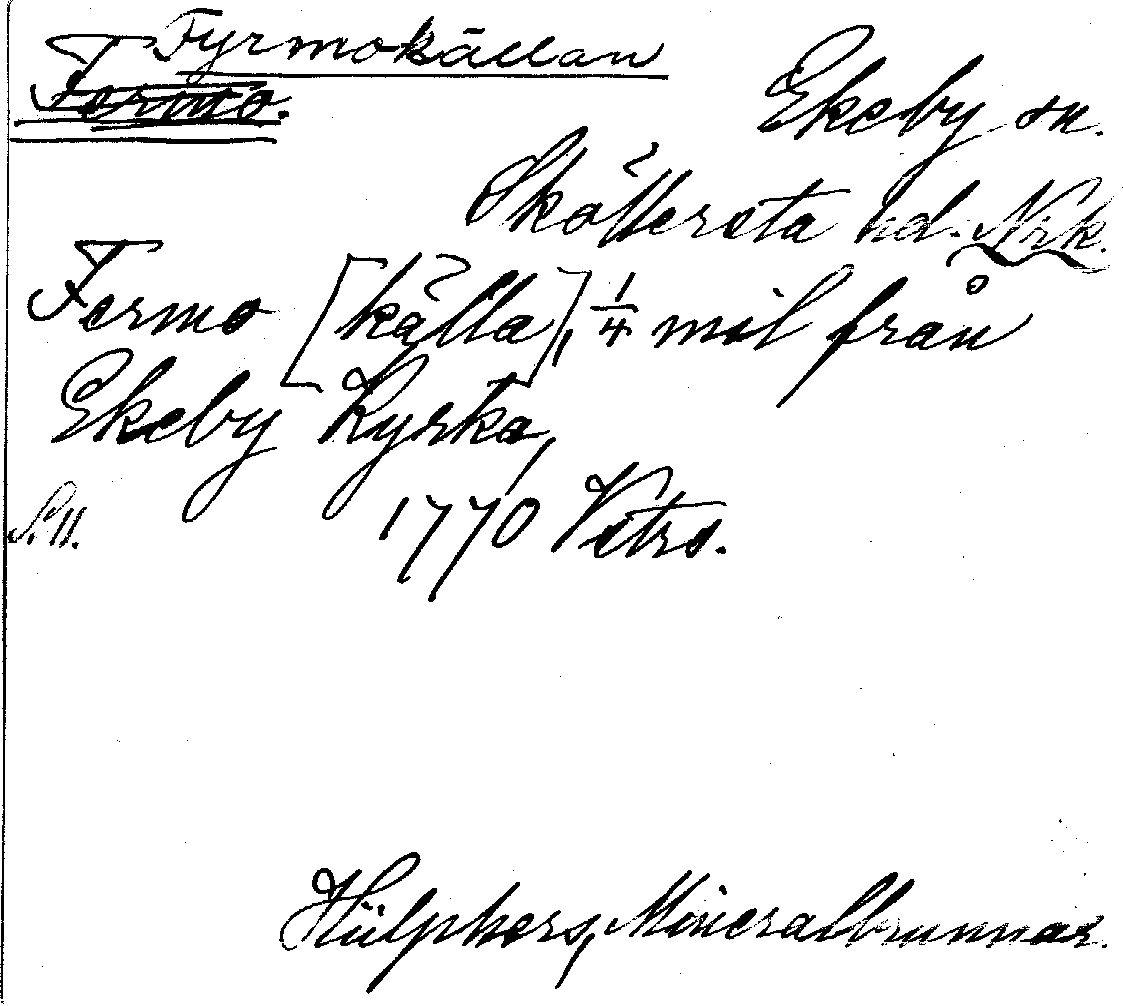 Fyrmokällan
Fermo.
Ekeby sn.
Sköllersta hd. Nrk.
Fermo [källa], 1/4 mil från
Ekeby Kyrka,
1770 Vetrs.
Hülphers, Mineralbrunnar.